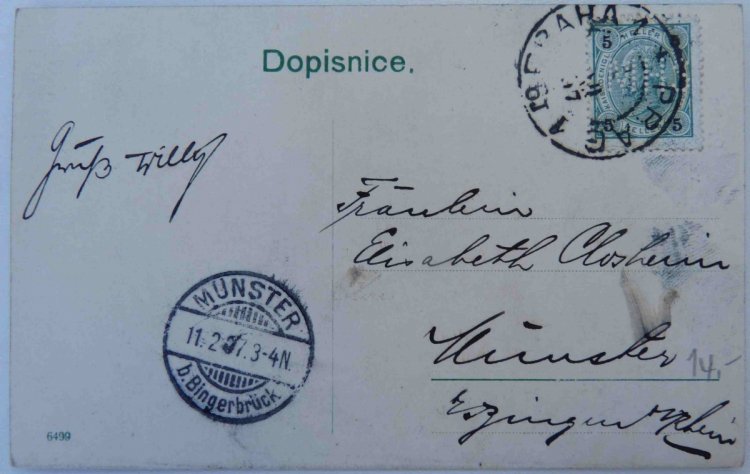 Dopisnice.
PRAHA 1
5 5
5 5
Gruß Willy
Fräulein
Elisabeth Closheim
Münster
Bingen Rhein
14,-
MÜNSTER
11.2.07.3-4N.
b.Bingerbrück
6499